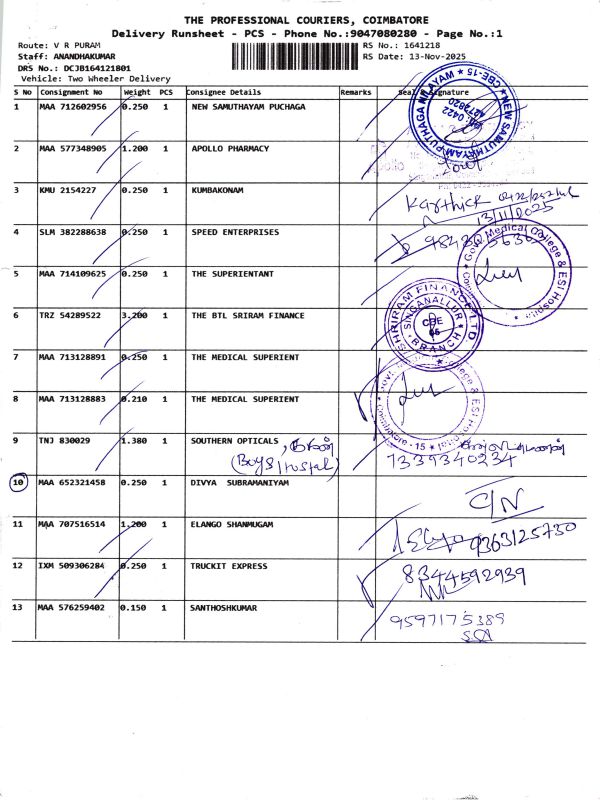 THE PROFESSIONAL COURIERS, COIMBATORE
Delivery Runsheet - PCS - Phone No.:9047080280 - Page No.:1
Route: V R PURAM
RS No.: 1641218
Staff: ANANDHAKUMAR
RS Date: 13-Nov-2025
DRS No.: DCJB164121801
Vehicle: Two Wheeler Delivery
S No Consignment No Weight PCS Consignee Details Remarks Seal & Signature
1 MAA 712602956 0.250 1 NEW SAMUTHAYAM PUCHAGA
NEW SAMUTHAYAM PUTHAGA NILAYAM ★ CBE-15 ★
PH: 0422
4272820
2 MAA 577348905 1.200 1 APOLLO PHARMACY
3 KMU 2154227 0.250 1 KUMBAKONAM
Karthick
13/11/2025
4 SLM 382288638 0.250 1 SPEED ENTERPRISES
5 MAA 714109625 0.250 1 THE SUPERIENTANT
Govt. Medical College & ESI Hospital
6 TRZ 54289522 3.200 1 THE BTL SRIRAM FINANCE
SHRIRAM FINANCE LTD
SINGANALLUR
CBE
BRANCH
7 MAA 713128891 0.250 1 THE MEDICAL SUPERIENT
8 MAA 713128883 0.210 1 THE MEDICAL SUPERIENT
Govt. Medical College & ESI Hospital ★ Coimbatore - 15 ★
9 TNJ 830029 1.380 1 SOUTHERN OPTICALS
(Boys Hostel)
7339340234
10 MAA 652321458 0.250 1 DIVYA SUBRAMANIYAM
C/N
11 MAA 707516514 1.200 1 ELANGO SHANMUGAM
9363125730
12 IXM 509306284 0.250 1 TRUCKIT EXPRESS
8344592939
13 MAA 576259402 0.150 1 SANTHOSHKUMAR
9597175389